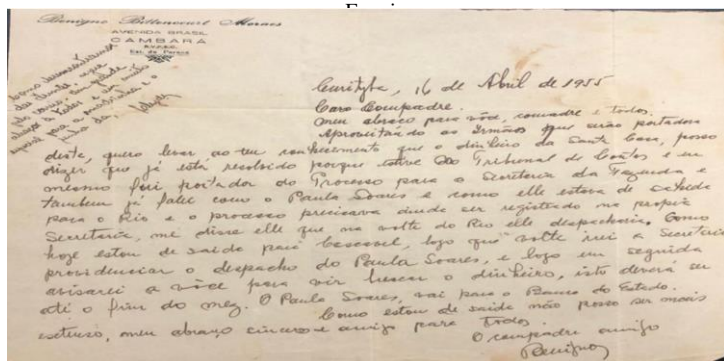 Benigno Bittencourt Moraes
AVENIDA BRASIL
CAMBARÁ
Est. do Paraná
Curityba, 16 de Abril de 1955
Caro Compadre.
Meu abraço para você, comadre e todos.
Aproveitando as Irmãos que serão portadoras
deste, quero levar ao teu conhecimento que o dinheiro da Santa Casa, posso
dizer que já está resolvido porque estive no Tribunal de Contas e eu
mesmo fui portador do Processo para a Secretaria da Fazenda e
tambem já falei com o Paula Soares e como elle estava de sahida
para o Rio e o processo precisava ainda ser registado na propia
Secretaria, me disse elle que na volta do Rio elle despacharia. Como
hoje estou de saida para Cascavel, logo que volte irei a Secretaria
providenciar o despacho do Paula Soares, e logo em seguida
avisarei a você para vir buscar o dinheiro, isto deverá ser
até o fim do mez. O Paula Soares, vai para o Banco do Estado.
Como estou de saida não posso ser mais
extenso, meu abraço sincero e amigo para todos.
O compadre amigo
Benigno